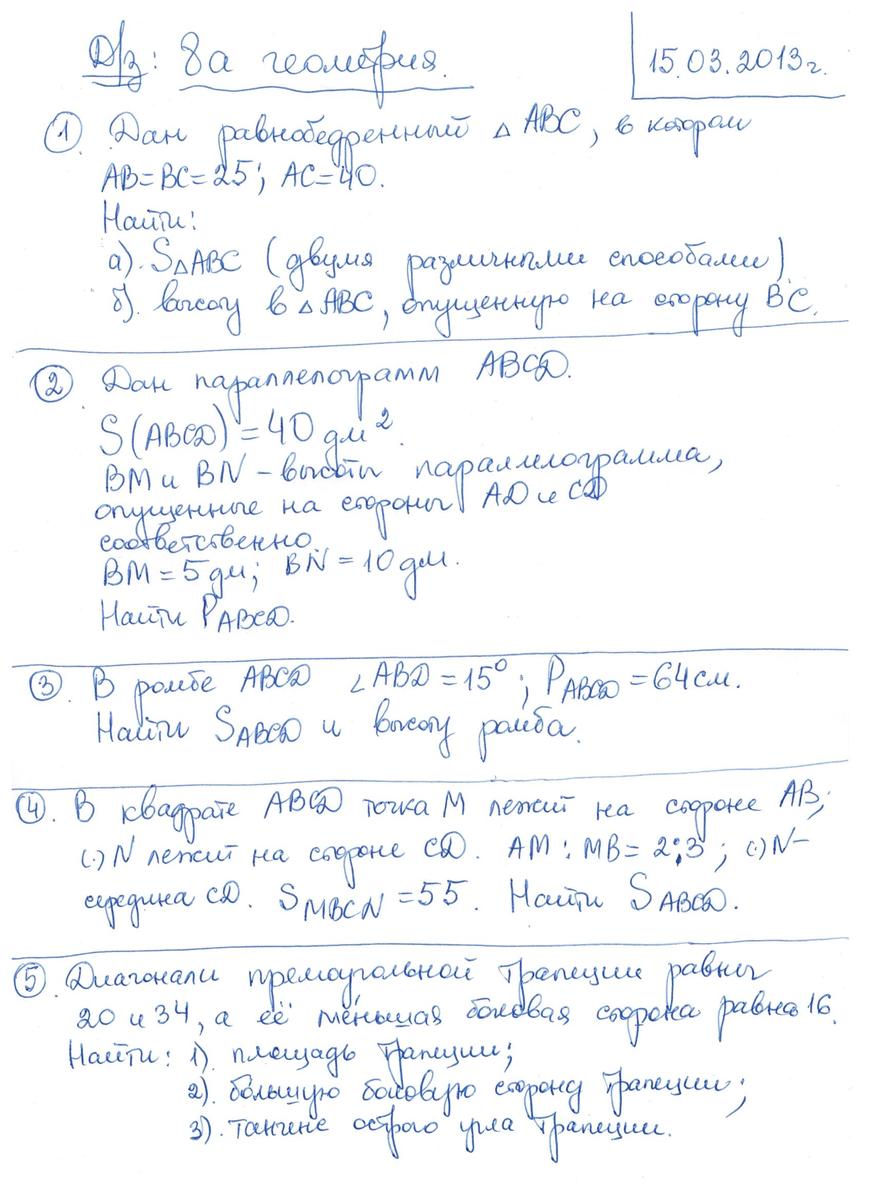 Д/з: 8а геометрия.
15.03.2013г.
① Дан равнобедренный △ ABC, в котором
AB=BC=25; AC=40.
Найти:
а). S△ABC (двумя различными способами)
б). высоту в △ABC, опущенную на сторону BC.
② Дан параллелограмм ABCD.
S(ABCD)=40 дм².
BM и BN – высоты параллелограмма,
опущенные на стороны AD и CD
соответственно.
BM = 5 дм; BN = 10 дм.
Найти P ABCD.
③. В ромбе ABCD ∠ABD = 15°; P ABCD = 64 см.
Найти S ABCD и высоту ромба.
④. В квадрате ABCD точка M лежит на стороне AB;
(·) N лежит на стороне CD. AM : MB = 2:3; (·) N –
середина CD. S MBCN = 55. Найти S ABCD.
⑤. Диагонали прямоугольной трапеции равны
20 и 34, а её ме́ньшая боковая сторона равна 16.
Найти: 1). площадь трапеции;
2). бо́льшую боковую сторону трапеции;
3). тангенс острого угла трапеции.